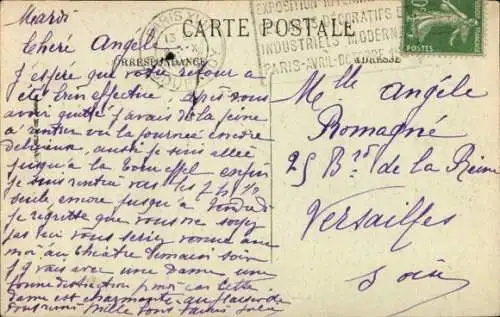 CARTE POSTALE
CORRESPONDANCE
ADRESSE
PARIS
EXPOSITION
DECORATIFS
INDUSTRIELS MODERNES
PARIS-AVRIL-OCTOBRE
POSTES
Mardi
Chère Angèle
J'espère que votre retour a
été bien effectué, après vous
avoir quitté j'avais de la peine
à rentrer vu la journée encore
délicieuse, aussi je suis allée
jusqu'à la tour effel enfin
je suis rentré vers les 7 h ½
seule encore jusqu'à Vendredi
je regrette que vous ne soyez
pas vous seriez venue avec
moi au théâtre demain soir
j'y vais avec une Dame une
bonne distraction pour cette
Dame est charmante
mille
Mlle Angèle
Romagné
25 Bd de la Reine
Versailles
S oise